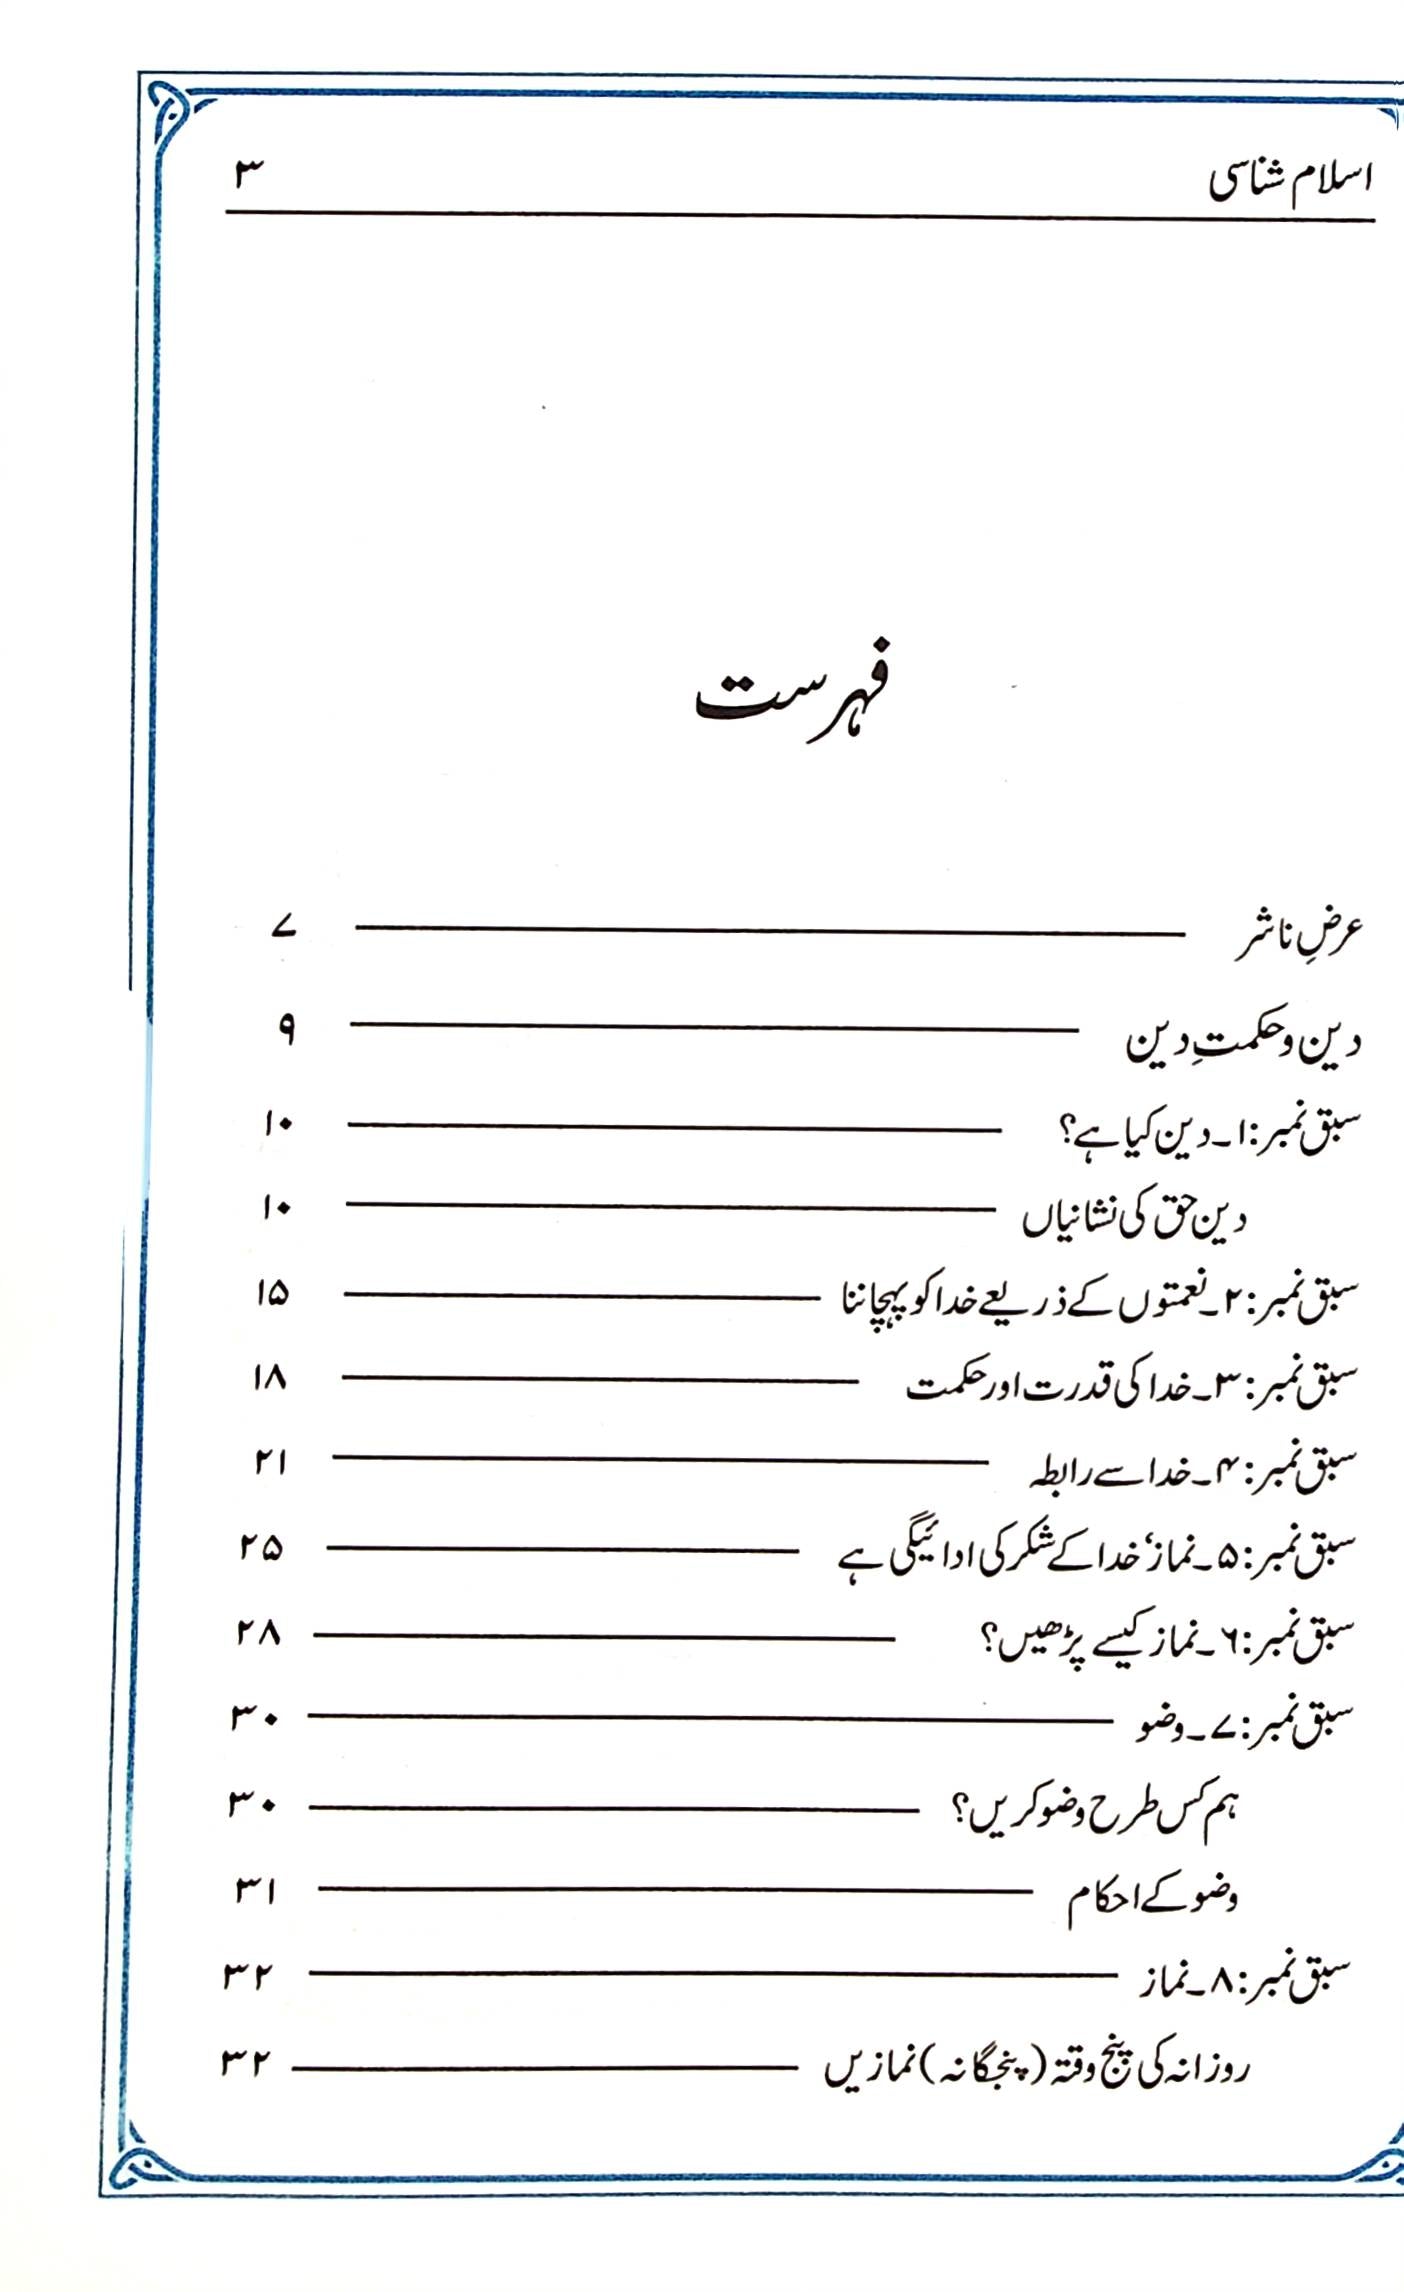 اسلام شناسی ۳
فہرست
عرضِ ناشر ۷
دین و حکمتِ دین ۹
سبق نمبر: ۱۔ دین کیا ہے؟ ۱۰
دین حق کی نشانیاں ۱۰
سبق نمبر: ۲۔ نعمتوں کے ذریعے خدا کو پہچاننا ۱۵
سبق نمبر: ۳۔ خدا کی قدرت اور حکمت ۱۸
سبق نمبر: ۴۔ خدا سے رابطہ ۲۱
سبق نمبر: ۵۔ نماز‘ خدا کے شکر کی ادائیگی ہے ۲۵
سبق نمبر: ۶۔ نماز کیسے پڑھیں؟ ۲۸
سبق نمبر: ۷۔ وضو ۳۰
ہم کس طرح وضو کریں؟ ۳۰
وضو کے احکام ۳۱
سبق نمبر: ۸۔ نماز ۳۲
روزانہ کی پنج وقتہ (پنجگانہ) نمازیں ۳۲